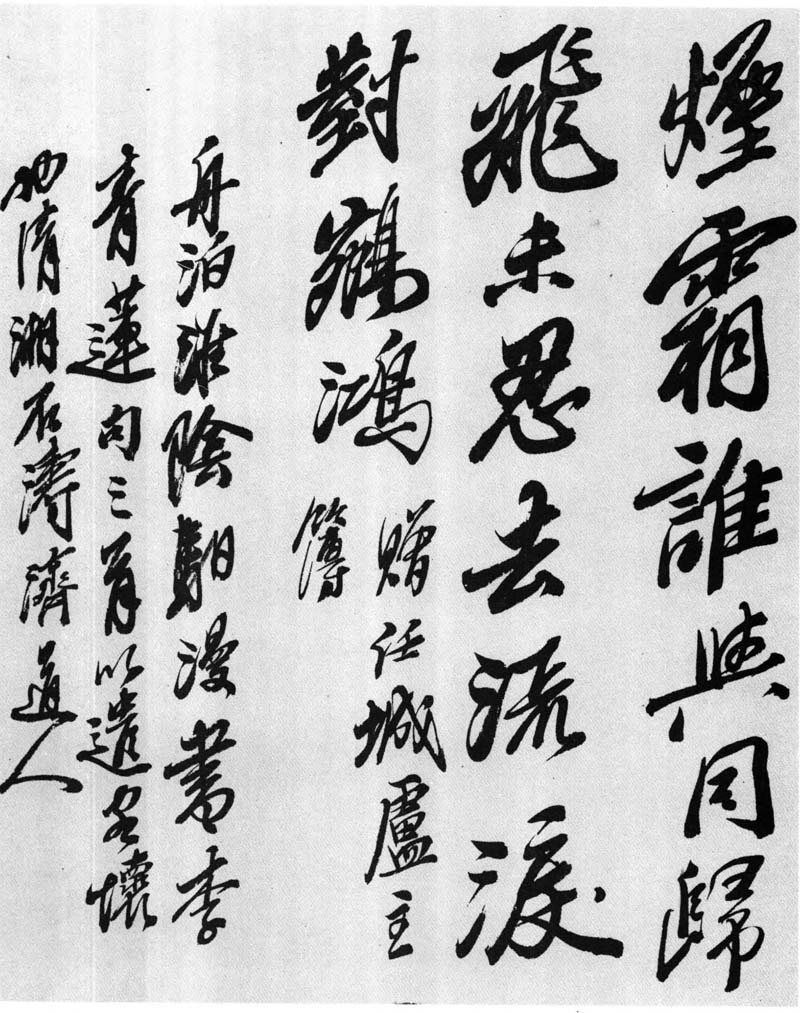 煙霜誰與同歸
飛未忍去流淚
對鵷鴻
贈任城盧主
簿
舟泊淮陰馹漫書李
青蓮句三首以遣客懷
清湘石濤濟道人